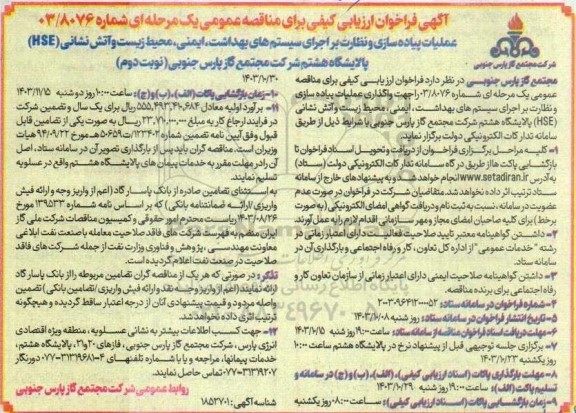 آگهی فراخوان ارزیابی کیفی برای مناقصه عمومی یک مرحله ای شماره ۰۳/۸۰۷۶
عملیات پیاده سازی و نظارت بر اجرای سیستم های بهداشت، ایمنی، محیط زیست و آتش نشانی (HSE)
پالایشگاه هشتم شرکت مجتمع گاز پارس جنوبی (نوبت دوم)
شرکت مجتمع گاز پارس جنوبی
مجتمع گاز پارس جنوبی در نظر دارد فراخوان ارزیابی کیفی برای مناقصه
عمومی یک مرحله ای شماره ۰۳/۸۰۷۶ راجهت واگذاری عملیات پیاده سازی
و نظارت بر اجرای سیستم های بهداشت، ایمنی، محیط زیست و آتش نشانی
(HSE) پالایشگاه هشتم شرکت مجتمع گاز پارس جنوبی با شرایط ذیل از طریق
سامانه تدارکات الکترونیکی دولت برگزار نماید.
۱- کلیه مراحل برگزاری فراخوان از دریافت و تحویل اسناد فراخوان تا
بازگشایی پاکت ها از طریق درگاه سامانه تدارکات الکترونیکی دولت (ستاد)
به آدرس www.setadiran.ir انجام خواهد شد و به پیشنهادهای خارج از سامانه
ستاد ترتیب اثر داده نخواهد شد. متقاضیان شرکت در فراخوان در صورت عدم
عضویت در سامانه، نسبت به ثبت نام و دریافت گواهی امضای الکترونیکی (به صورت
برخط) برای کلیه صاحبان امضای مجاز و مهر سازمانی اقدام لازم را به عمل آورند.
۲- داشتن گواهینامه معتبر تایید صلاحیت فعالیت دارای اعتبار زمانی در
رشته "خدمات عمومی" از اداره کل تعاون، کار و رفاه اجتماعی و بارگذاری آن در
سامانه ستاد.
۳- داشتن گواهینامه صلاحیت ایمنی دارای اعتبار زمانی از سازمان تعاون کار و
رفاه اجتماعی برای برنده مناقصه.
۴- شماره فراخوان در سامانه ستاد:
۵- تاریخ انتشار فراخوان در سامانه ستاد: روز شنبه ۱۴۰۳/۰۶/۰۸
۶- مهلت دریافت اسناد فراخوان مناقصه از سامانه ستاد: ساعت ۱۹:۰۰ روز شنبه ۱۴۰۳/۶/۱۵
۷- برگزاری جلسه توجیهی قبل از پیشنهاد نرخ در پالایشگاه هشتم ساعت ۱۰:۰۰
روز یکشنبه ۱۴۰۳/۶/۲۳
۸- مهلت بارگذاری پاکات (اسناد ارزیابی کیفی)، (الف)، (ب) و (ج) در سامانه و
تسلیم پاکات (الف): ساعت ۱۹:۰۰ روز شنبه ۱۴۰۳/۰۶/۲۹
۹- زمان بازگشایی پاکات (اسناد ارزیابی کیفی): ساعت ۰۸:۰۰ روز یکشنبه
۱۴۰۳/۰۶/۳۰
۱۰- زمان بازگشایی پاکات (الف)، (ب) و (ج): ساعت ۱۰:۰۰ روز دوشنبه ۱۴۰۳/۱۱/۱۵
۱۱- برآورد اولیه معادل ریال برای یک سال و تضمین شرکت
در فرایند ارجاع کار به مبلغ ریال به صورت یکی از تضامین قابل
قبول وفق آیین نامه تضمین شماره ۱۲۳۴۰۲/ت۵۰۶۵۹هـ مورخ ۹۴/۰۹/۲۲ هیات
وزیران است. مناقصه گران باید پس از بارگذاری تصویر آن در سامانه ستاد، اصل
آن را در مهلت مقرر به خدمات پیمان های پالایشگاه هشتم واقع در عسلویه
تسلیم نمایند.
به استثنای تضامین صادره از بانک پاسارگاد (اعم از واریز وجه و ارائه فیش
واریزی/ارائه ضمانتنامه بانکی) که بر اساس نامه شماره ۱۳۹۵۳۳ مورخ
۱۴۰۳/۰۸/۲۶ ریاست محترم امور حقوقی و کمیسیون مناقصات شرکت ملی گاز
ایران منضم به فهرست شرکت های فاقد صلاحیت معامله با صنعت نفت ابلاغی
معاونت مهندسی، پژوهش و فناوری وزارت نفت از جمله شرکت های فاقد
صلاحیت در صنعت نفت اعلام گردیده است.
تذکر: در صورتی که هر یک از مناقصه گران تضامین مربوطه را از بانک پاسارگاد
ارائه نمایند (اعم از واریز وجه نقد و ارائه فیش واریزی/تضامین بانکی) تضمین
واصله مردود و قیمت پیشنهادی آنان از درجه اعتبار ساقط گردیده و هیچگونه
ترتیب اثری داده نخواهد شد.
۱۲- جهت کسب اطلاعات بیشتر به نشانی عسلویه، منطقه ویژه اقتصادی
انرژی پارس، شرکت مجتمع گاز پارس جنوبی، فازهای ۲۰ و ۲۱، پالایشگاه هشتم،
خدمات پیمانها، مراجعه و یا با شماره تلفنهای ۴-۰۷۷۳۱۳۱۹۶۸۱ دورنگار
۰۷۷-۳۱۳۱۹۲۰۷ تماس حاصل نمایند.
روابط عمومی شرکت مجتمع گاز پارس جنوبی
شناسه آگهی: ۱۸۵۲۷۰۱